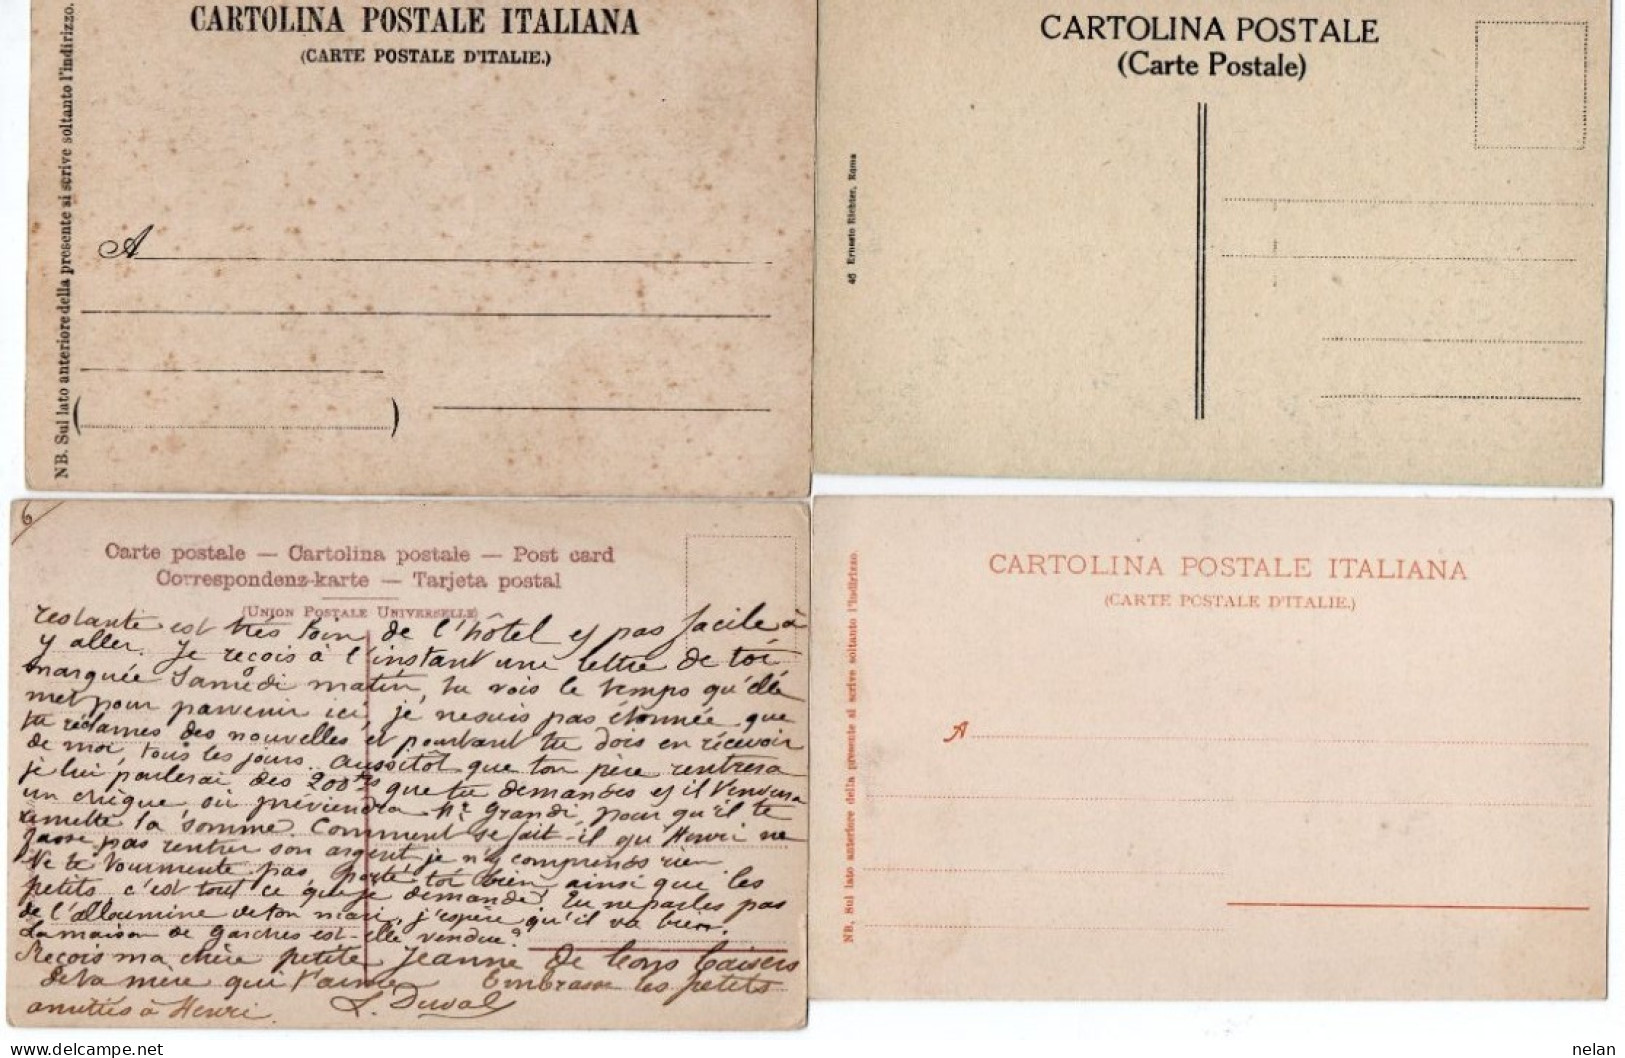 CARTOLINA POSTALE ITALIANA
(CARTE POSTALE D'ITALIE.)
NB. Sul lato anteriore della presente si scrive soltanto l'indirizzo.
A
CARTOLINA POSTALE
(Carte Postale)
46 Ernesto Richter, Roma
6
Carte postale — Cartolina postale — Post card
Correspondenz-karte — Tarjeta postal
(UNION POSTALE UNIVERSELLE)
restante est très loin de l'hôtel et pas facile à
y aller. Je reçois à l'instant une lettre de toi
marquée Samedi matin, tu vois le temps qu'elle
met pour parvenir ici, je ne suis pas étonnée que
tu réclames des nouvelles et pourtant tu dois en recevoir
de moi, tous les jours. Aussitôt que ton père rentrera
je lui parlerai des 200 frs que tu demandes et il t'enverra
un chèque où préviendra Mr Grandi, pour qu'il te
remette la somme. Comment se fait-il qu'Henri ne
fasse pas rentrer son argent je n'y comprends rien
Ne te tourmente pas porte toi bien ainsi que les
petits c'est tout ce que je demande. Tu ne parles pas
de l'allbumine de ton mari, j'espère qu'il va bien.
La maison de Garches est-elle vendue?
Reçois ma chère petite Jeanne de bons baisers
de ta mère qui t'aime Embrasse les petits
amitiés à Henri. L. Duval
CARTOLINA POSTALE ITALIANA
(CARTE POSTALE D'ITALIE.)
NB. Sul lato anteriore della presente si scrive soltanto l'indirizzo.
A
delcampe.net
nelan